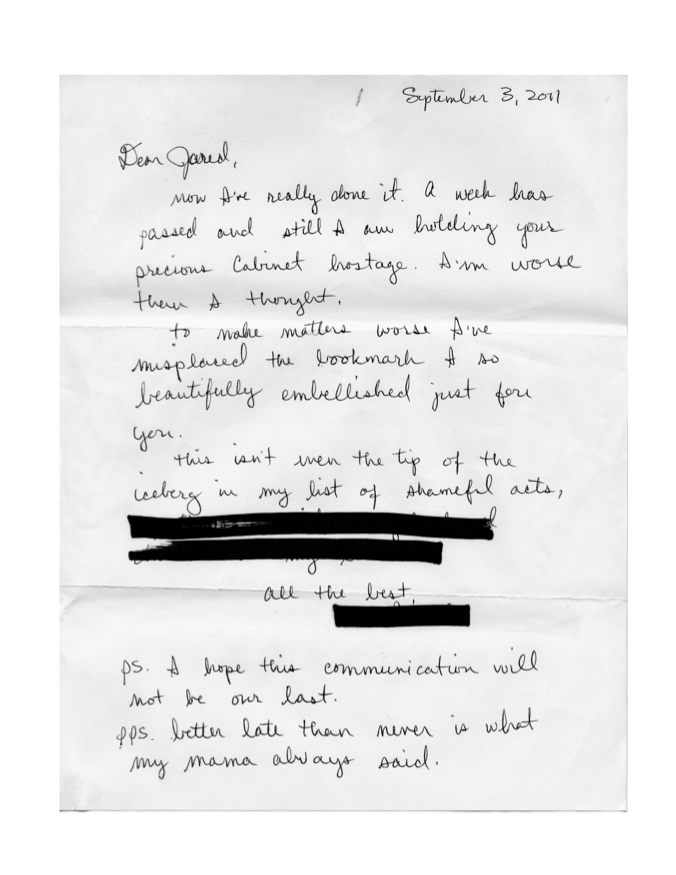 September 3, 2011
Dear Jared,
now I've really done it. A week has
passed and still I am holding your
precious Cabinet hostage. I'm worse
then I thought.
to make matters worse I've
misplaced the bookmark I so
beautifully embellished just for
you.
this isn't even the tip of the
iceberg in my list of shameful acts,
all the best,
ps. I hope this communication will
not be our last.
pps. better late than never is what
my mama always said.